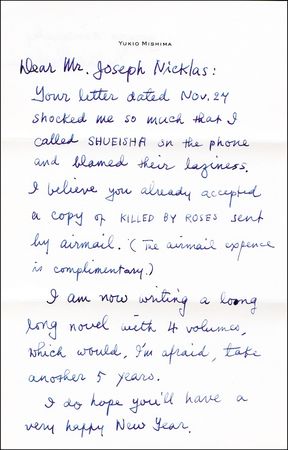 YUKIO MISHIMA
Dear Mr. Joseph Nicklas:
Your letter dated Nov. 24
shocked me so much that I
called SHUEISHA on the phone
and blamed their laziness.
I believe you already accepted
a copy of KILLED BY ROSES sent
by airmail. (The airmail expence
is complimentary.)
I am now writing a loong
long novel with 4 volumes,
which would, I'm afraid, take
another 5 years.
I do hope you'll have a
very happy New Year.